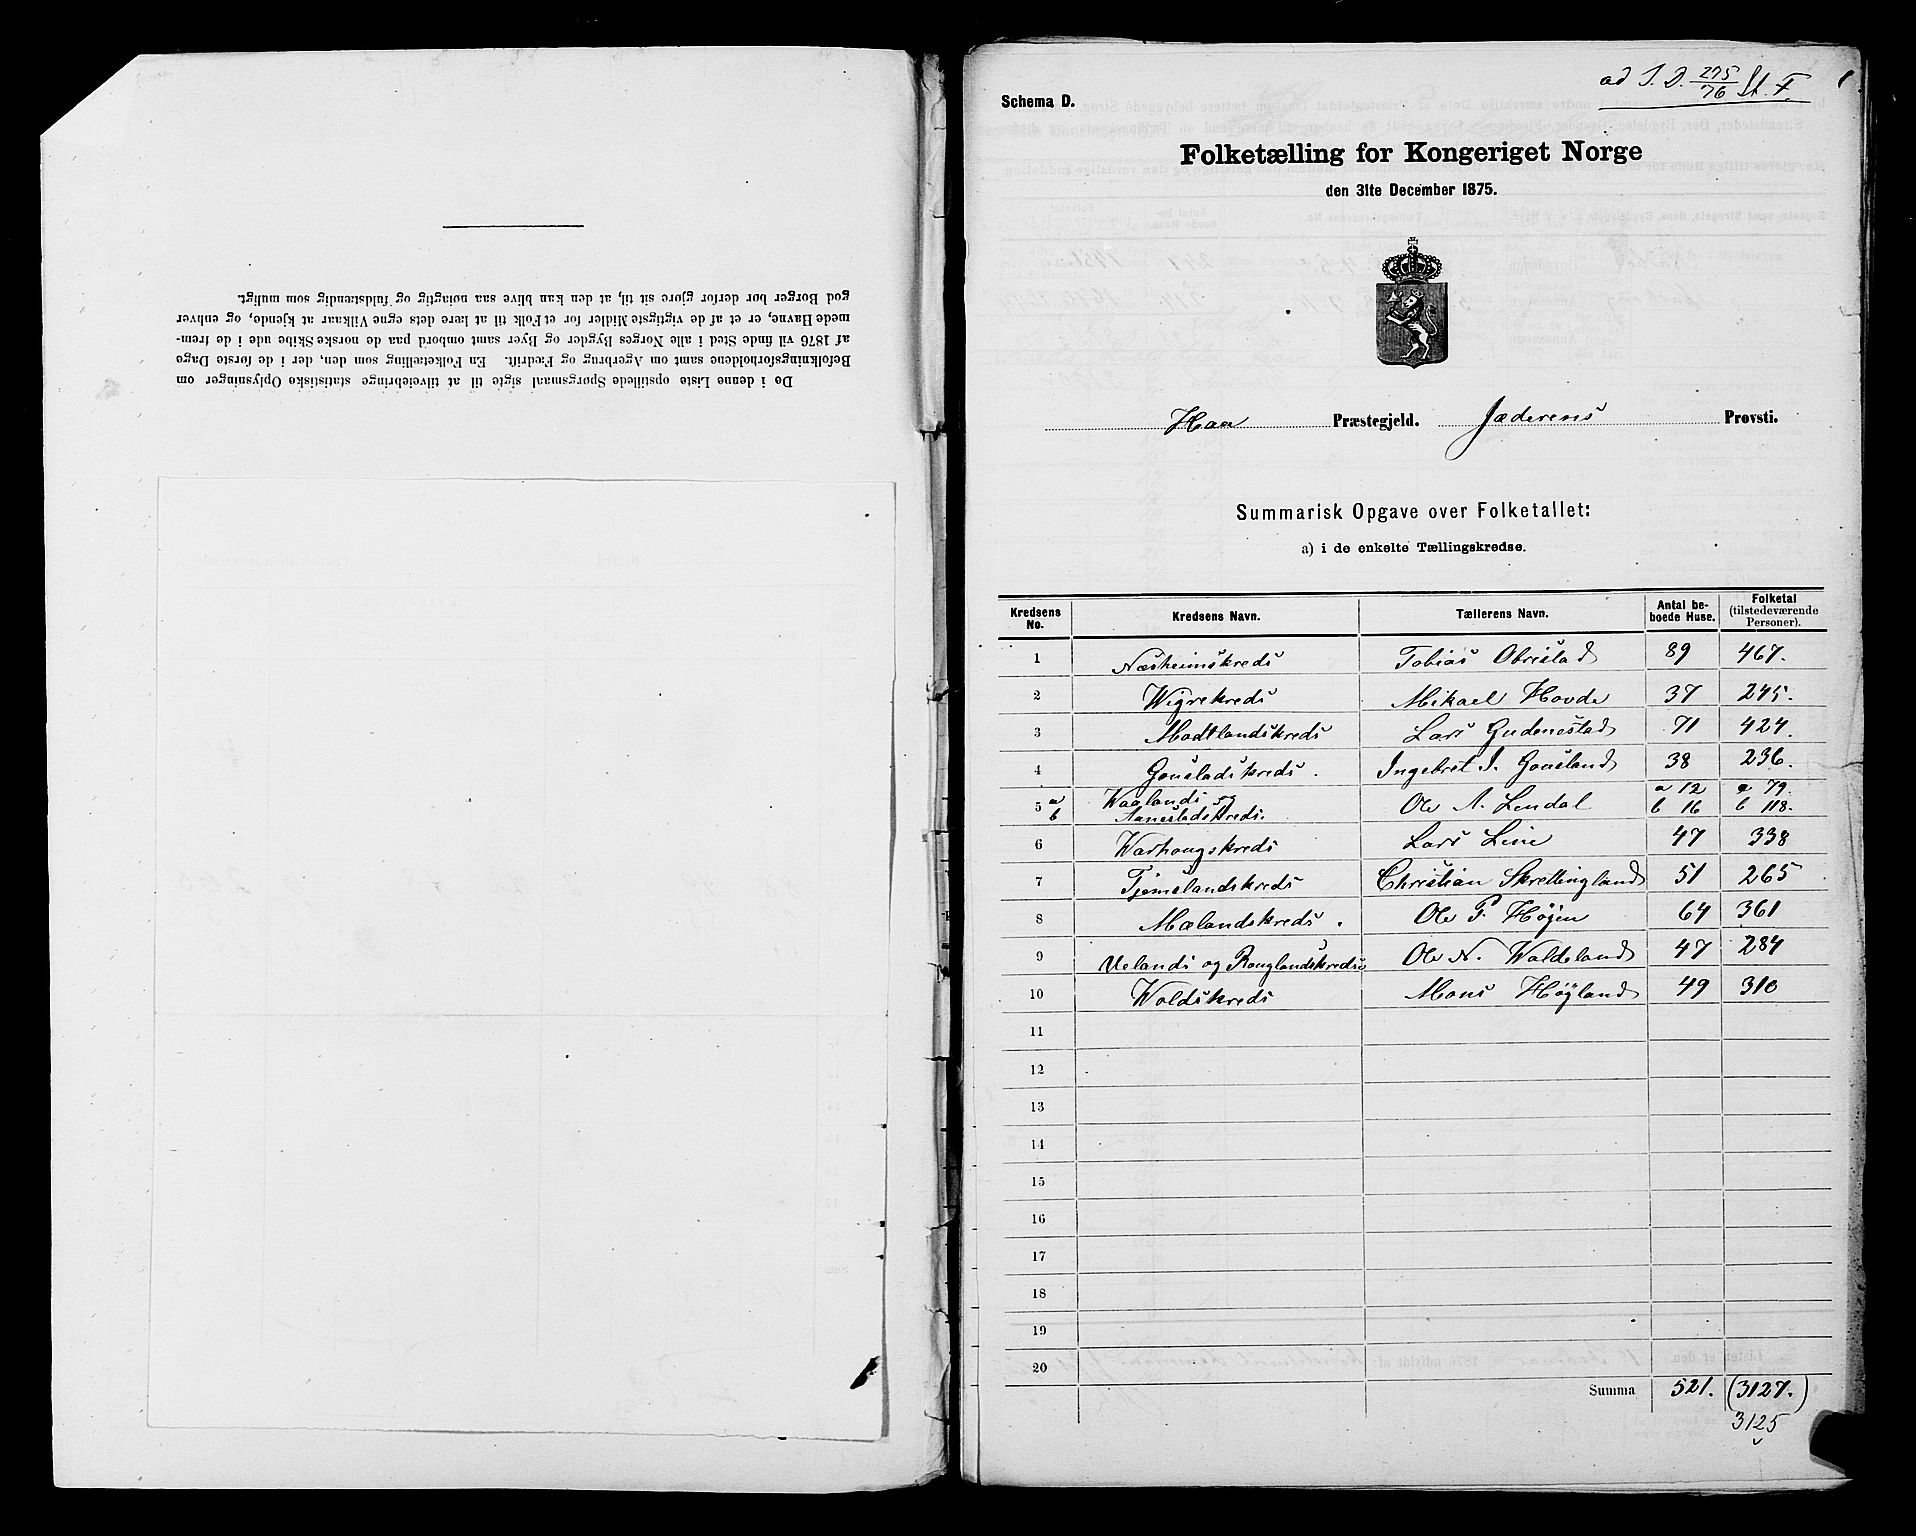 De i denne Liste opstillede Spørgsmaal sigte til at tilveiebringe statistiske Oplysninger om
Befolkningsforholdene samt om Agerbrug og Fædrift. En Folketælling som den, der i de første Dage
af 1876 vil finde Sted i alle Norges Bygder og Byer samt ombord paa de norske Skibe ude i de frem-
mede Havne, er et af de vigtigste Midler for et Folk til at lære dets egne Vilkaar at kjende, og enhver
god Borger bør derfor gjøre sit til, at den kan blive saa nøiagtig og fuldstændig som muligt.
ad J. D. 275/76 St. F.
Schema D.
Folketælling for Kongeriget Norge
den 31te December 1875.
Haa Præstegjeld. Jæderens Provsti.
Summarisk Opgave over Folketallet:
a) i de enkelte Tællingskredse.
Kredsens No. Kredsens Navn. Tællerens Navn. Antal be-boede Huse. Folketal (tilstedeværende Personer).
1 Næsheimskreds Tobias Obrestad 89 467.
2 Wigrekreds Mikael Hovde 37 245.
3 Modtlandskreds Lars Gudmestad 71 424.
4 Gousladskreds. Ingebret I. Gousland 38 236.
5 a Waalands og a 12 a 79.
b Aanestadskreds. Ole A. Lendal b 16 b 118.
6 Warhougskreds Lars Line 47 338
7 Tjemslandskreds Christian Skretlingland 51 265
8 Mælandskreds. Ole P. Højen 64 361
9 Uelands og Rouglandskreds Ole N. Woldeland 47 284
10 Woldskreds Mons Høyland 49 310
11
12
13
14
15
16
17
18
19
20
Summa 521. (3127.)
3125